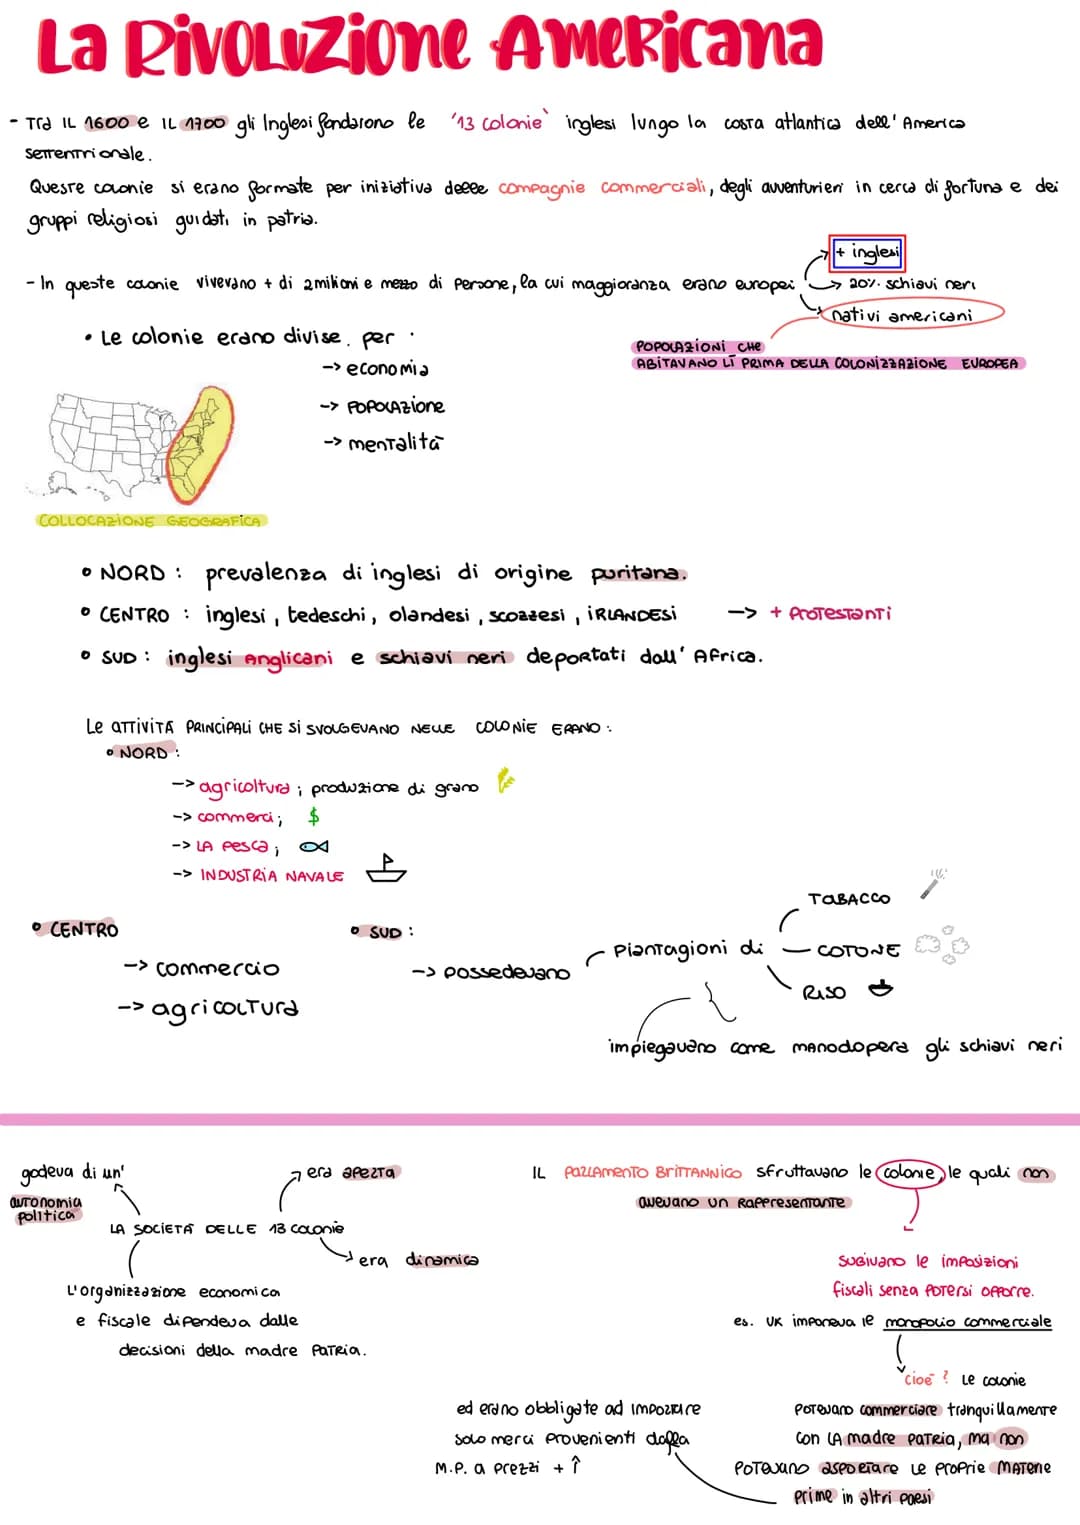 La Rivoluzione Americana
- Tra il 1600 e il 1700 gli Inglesi fondarono le '13 colonie' inglesi lungo la costa atlantica dell'America
settentrionale.
Queste colonie si erano formate per iniziativa delle compagnie commerciali, degli avventurieri in cerca di fortuna e dei
gruppi religiosi guidati in patria.
+ inglesi
- In queste colonie vivevano + di 2 milioni e mezzo di persone, la cui maggioranza erano europei -> 20% schiavi neri
nativi americani
• Le colonie erano divise per :
POPOLAZIONI CHE
ABITAVANO LÌ PRIMA DELLA COLONIZZAZIONE EUROPEA
-> economia
-> POPOLAZIONE
-> mentalità
COLLOCAZIONE GEOGRAFICA
• NORD : prevalenza di inglesi di origine puritana.
• CENTRO : inglesi, tedeschi, olandesi, scozzesi, IRLANDESI -> + PROTESTANTI
• SUD : inglesi Anglicani e schiavi neri deportati dall'Africa.
Le ATTIVITÀ PRINCIPALI CHE SI SVOLGEVANO NELLE COLONIE ERANO :
• NORD :
-> agricoltura ; produzione di grano
-> commerci ; $
-> LA PESCA ;
-> INDUSTRIA NAVALE
TABACCO
• CENTRO
• SUD :
Piantagioni di
COTONE
-> commercio
-> possedevano
RISO
-> agricoltura
impiegavano come manodopera gli schiavi neri
godeva di un'
autonomia
politica
era aperta
IL PARLAMENTO BRITANNICO sfruttavano le colonie, le quali non
avevano un rappresentante
LA SOCIETÀ DELLE 13 colonie
era dinamica
subivano le imposizioni
fiscali senza potersi opporre.
L'organizzazione economica
e fiscale dipendeva dalle
decisioni della madre PATRIA.
es. UK imponeva le monopolio commerciale
cioè ? Le colonie
potevano commerciare tranquillamente
con LA madre PATRIA, ma non
potevano asportare le proprie MATERIE
prime in altri paesi
ed erano obbligate ad importare
solo merci provenienti dalla
M.P. a prezzi + ↑